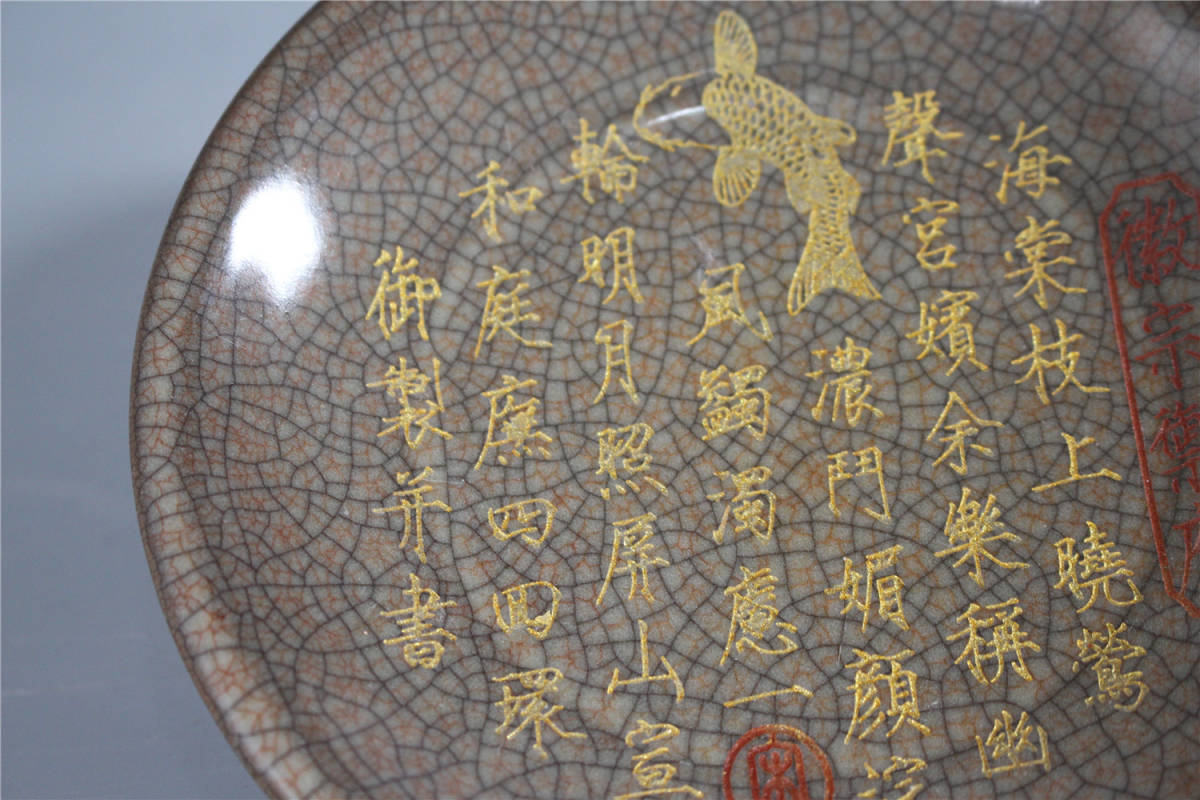 徽宗御
海棠枝上曉鶯
聲宮嬪余樂稱幽
濃鬥媚顏
風蠲濁慮一
輪明月照屏山宣
和庭四環
御製并書